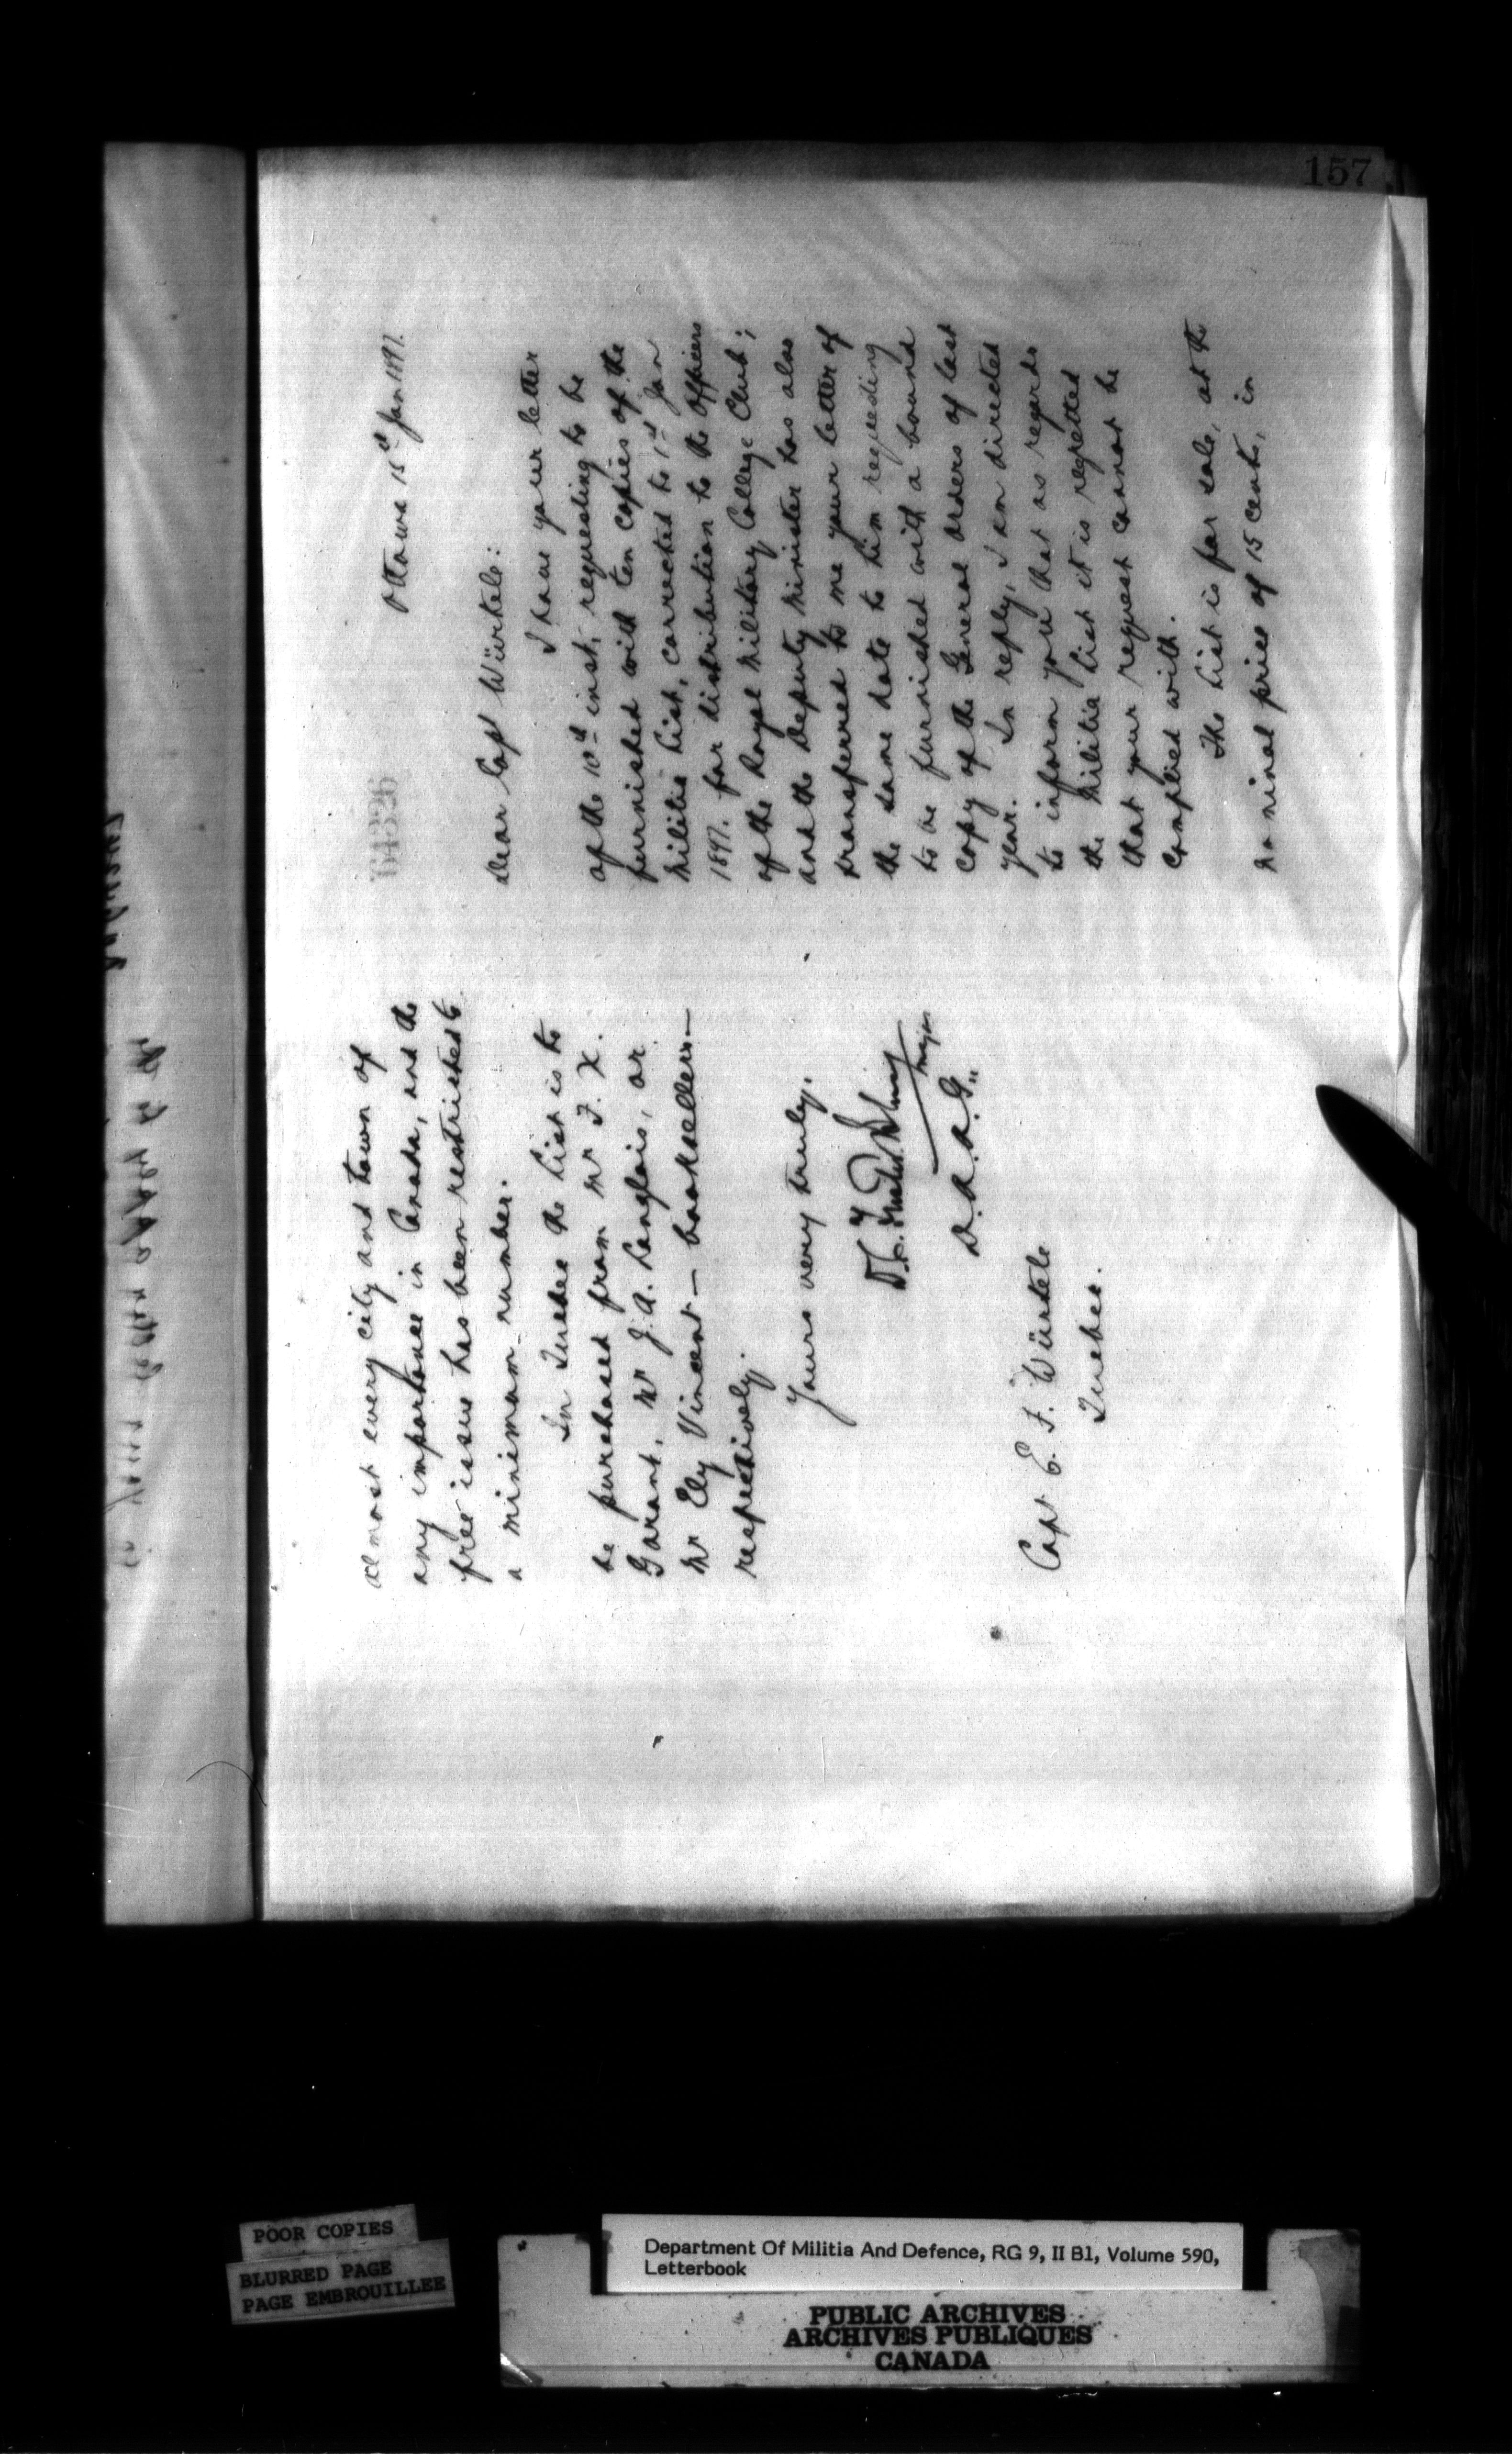 157
64326
Ottawa 15th Jan 1897.
Dear Capt Würtele:
I have your letter
of the 10th inst. requesting to be
furnished with ten copies of the
Militia List, corrected to 1st Jan
1897. for distribution to the Officers
of the Royal Military College Club;
and the Deputy Minister has also
transferred to me your letter of
the same date to him requesting
to be furnished with a bound
copy of the General Orders of last
year. In reply, I am directed
to inform you that as regards
the Militia List it is regretted
that your request cannot be
complied with.
The List is for sale, at the
nominal price of 15 cents, in
almost every city and town of
any importance in Canada, and the
free issue has been restricted to
a minimum number.
In Quebec the List is to
be purchased from Mr F. X.
Garant, Mr J. A. Langlois, or
Mr Ely Vincent — booksellers —
respectively.
Yours very truly,
Major
D.A.A.G.
Capt E. F. Würtele
Quebec.
POOR COPIES
BLURRED PAGE
PAGE EMBROUILLEE
Department Of Militia And Defence, RG 9, II B1, Volume 590,
Letterbook
PUBLIC ARCHIVES
ARCHIVES PUBLIQUES
CANADA